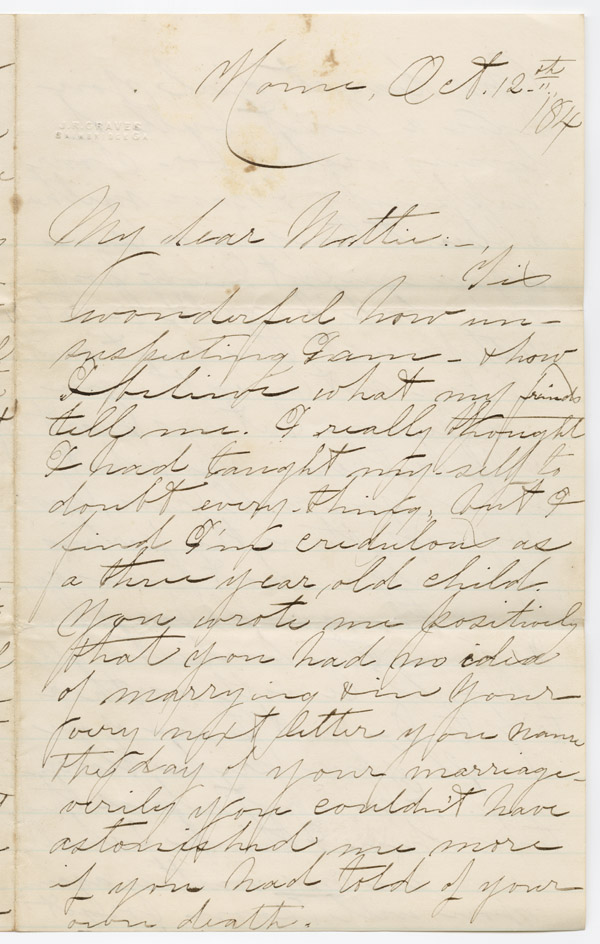 Home, Oct. 12th
/84
J. R. GRAVES
My dear Mattie:-
Tis
wonderful how un-
suspecting I am - & how
I believe what my friends
tell me. I really thought
I had taught my-self to
doubt every-thing, but I
find I'm credulous as
a three year old child.
You wrote me positively
that you had no idea
of marrying & in your
very next letter you name
the day of your marriage-
verily you couldn't have
astonished me more
if you had told of your
own death.